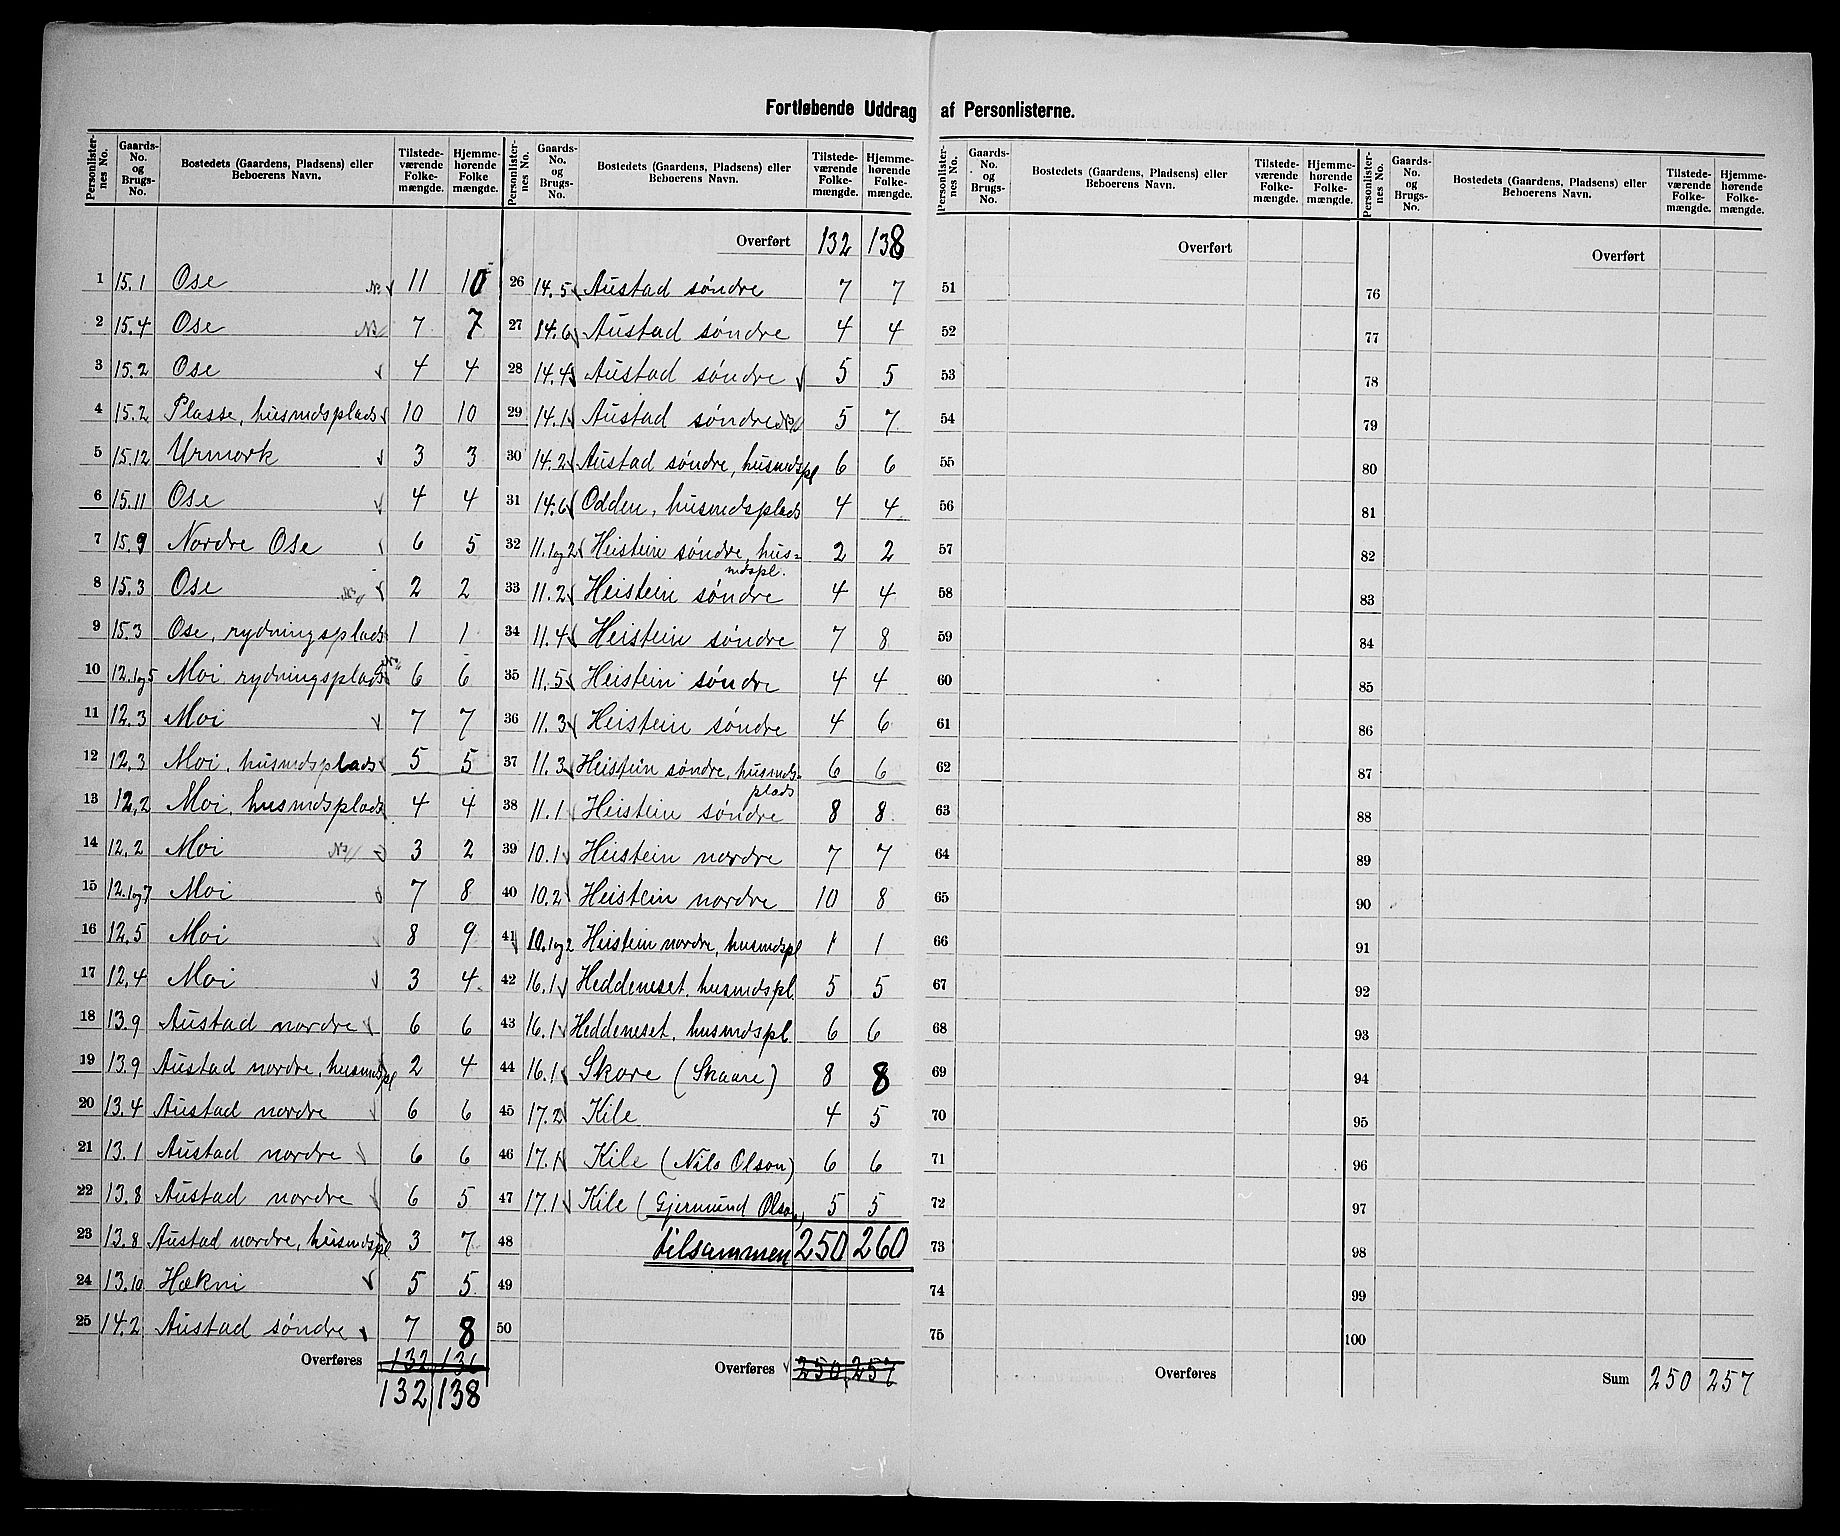 Fortløbende Uddrag af Personlisterne.
Personlisternes No. Gaards-No. og Brugs-No. Bostedets (Gaardens, Pladsens) eller Beboerens Navn. Tilstedeværende Folkemængde. Hjemmehørende Folkemængde.
1 15.1 Ose 11 10
2 15.4 Ose 7 7
3 15.2 Ose 4 4
4 15.2 Plasse, husmdsplads 10 10
5 15.12 Urmork 3 3
6 15.11 Ose 4 4
7 15.9 Nordre Ose 6 5
8 15.3 Ose 2 2
9 15.3 Ose, rydningsplads 1 1
10 12.1og5 Moi, rydningsplads 6 6
11 12.3 Moi 7 7
12 12.3 Moi, husmdsplads 5 5
13 12.2 Moi, husmdsplads 4 4
14 12.2 Moi 3 2
15 12.1og7 Moi 7 8
16 12.5 Moi 8 9
17 12.4 Moi 3 4
18 13.9 Austad nordre 6 6
19 13.9 Austad nordre, husmdspl 2 4
20 13.4 Austad nordre 6 6
21 13.1 Austad nordre 6 6
22 13.8 Austad nordre 6 5
23 13.8 Austad nordre, husmdspl 3 7
24 13.10 Hækni 5 5
25 14.2 Austad søndre 7 8
Overføres 132 136
132 138
Personlisternes No. Gaards-No. og Brugs-No. Bostedets (Gaardens, Pladsens) eller Beboerens Navn. Tilstedeværende Folkemængde. Hjemmehørende Folkemængde.
Overført 132 138
26 14.5 Austad søndre 7 7
27 14.6 Austad søndre 4 4
28 14.4 Austad søndre 5 5
29 14.1 Austad søndre 5 7
30 14.2 Austad søndre, husmdspl 6 6
31 14.6 Odden, husmdsplads 4 4
32 11.1og2 Heistein søndre, husmdspl. 2 2
33 11.2 Heistein søndre 4 4
34 11.4 Heistein søndre 7 8
35 11.5 Heistein søndre 4 4
36 11.3 Heistein søndre 4 6
37 11.3 Heistein søndre, husmdsplads 6 6
38 11.1 Heistein søndre 8 8
39 10.1 Heistein nordre 7 7
40 10.2 Heistein nordre 10 8
41 10.1og2 Heistein nordre, husmdspl 1 1
42 16.1 Heddeneset, husmdspl 5 5
43 16.1 Heddeneset, husmdspl 6 6
44 16.1 Skore (Skaare) 8 8
45 17.2 Kile 4 5
46 17.1 Kile (Nils Olson) 6 6
47 17.1 Kile (Gjermund Olson) 5 5
48 tilsammen 250 260
49
50
Overføres 250 257
Personlisternes No. Gaards-No. og Brugs-No. Bostedets (Gaardens, Pladsens) eller Beboerens Navn. Tilstedeværende Folkemængde. Hjemmehørende Folkemængde.
Overført
51
52
53
54
55
56
57
58
59
60
61
62
63
64
65
66
67
68
69
70
71
72
73
74
75
Overføres
Personlisternes No. Gaards-No. og Brugs-No. Bostedets (Gaardens, Pladsens) eller Beboerens Navn. Tilstedeværende Folkemængde. Hjemmehørende Folkemængde.
Overført
76
77
78
79
80
81
82
83
84
85
86
87
88
89
90
91
92
93
94
95
96
97
98
99
100
Sum 250 257